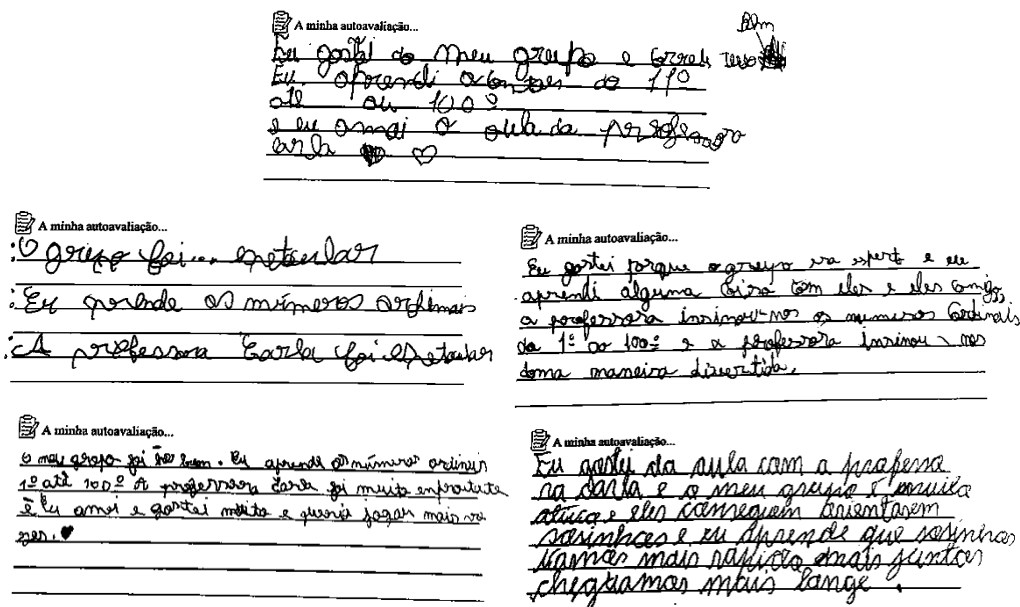 A minha autoavaliação...
Bem
Eu gostei do meu grupo e correu
Eu aprendi do 11º
até ou 100º
e eu amei a aula da professora
arla
A minha autoavaliação...
O grupo foi... espetacular
Eu aprende os números ordinais
A professora Carla foi espetacular
A minha autoavaliação...
Eu gostei porque o grupo era espert e eu
aprendi alguma coisa com eles e eles comigo,
a professora insinou-nos os numeros Cardinais
do 1º ao 100º e a professora insinou-nos
doma maneira divertida.
A minha autoavaliação...
O meu grupo foi bem. Eu aprende os números
1º até 100º A professora Carla foi muito
e Eu amei e gostei muito e queria jogar mais ve
zes.
A minha autoavaliação...
Eu gostei da aula com a professo
ra Carla e o meu grupo é muito
e eles conseguem orientarem
sosinhos e eu Aprende que sosinhos
vamos mais rápido mais juntos
chegamos mais longe.